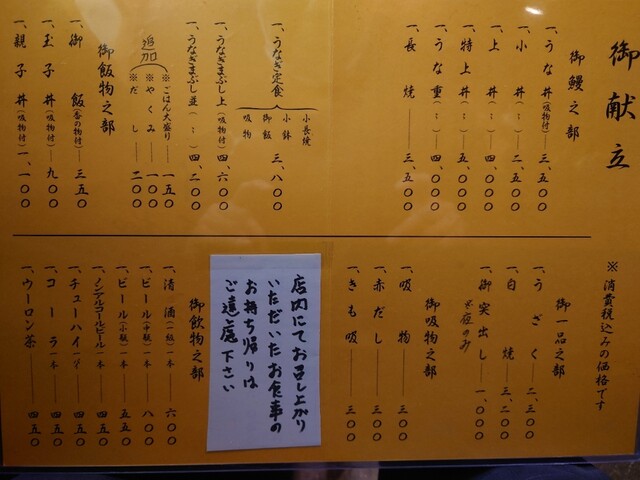 御献立
※消費税込みの価格です
御鰻之部
一、うな丼(吸物付)三、五〇〇
一、小丼(〃)二、五〇〇
一、上丼(〃)四、〇〇〇
一、特上丼(〃)五、〇〇〇
一、うな重(〃)四、〇〇〇
一、長焼三、五〇〇
一、うなぎ定食
小長焼
小鉢
御飯
吸物
三、八〇〇
一、うなぎまぶし上(〃)四、六〇〇
一、うなぎまぶし並(〃)四、二〇〇
追加
※ごはん大盛り一五〇
※やくみ一〇〇
※だし二〇〇
御飯物之部
一、御飯(香の物付)三五〇
一、玉子丼(吸物付)九〇〇
一、親子丼(吸物付)一、一〇〇
御一品之部
一、うざく二、三〇〇
一、白焼三、二〇〇
一、御突出し一、〇〇〇
※夜のみ
御吸物之部
一、吸物三〇〇
一、赤だし三〇〇
一、きも吸三〇〇
店内にてお召し上がり
いただいたお食事の
お持ち帰りは
ご遠慮下さい
御飲物之部
一、清酒(一級)一本六〇〇
一、ビール(中瓶)一本八〇〇
一、ビール(小瓶)一本五五〇
一、ノンアルコールビール一本四五〇
一、チューハイ四五〇
一、コーラ一本四五〇
一、ウーロン茶四五〇